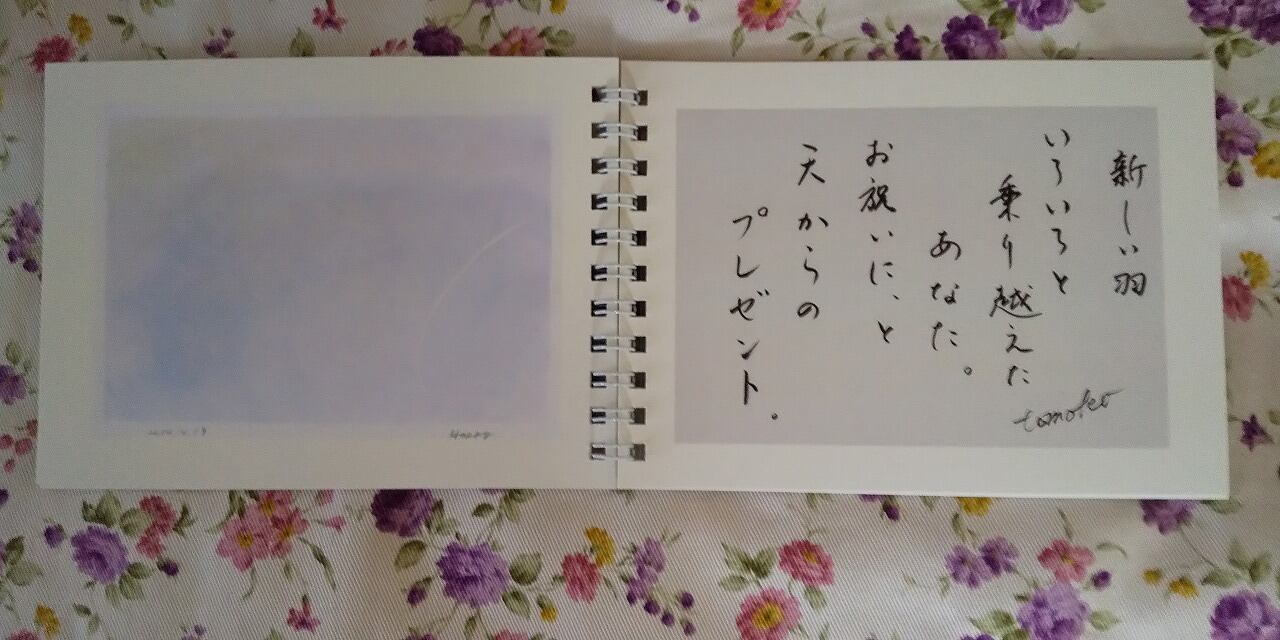 新しい羽
いろいろと
乗り越えた
あなた。
お祝いに、と
天からの
プレゼント.
tomoko
Happy